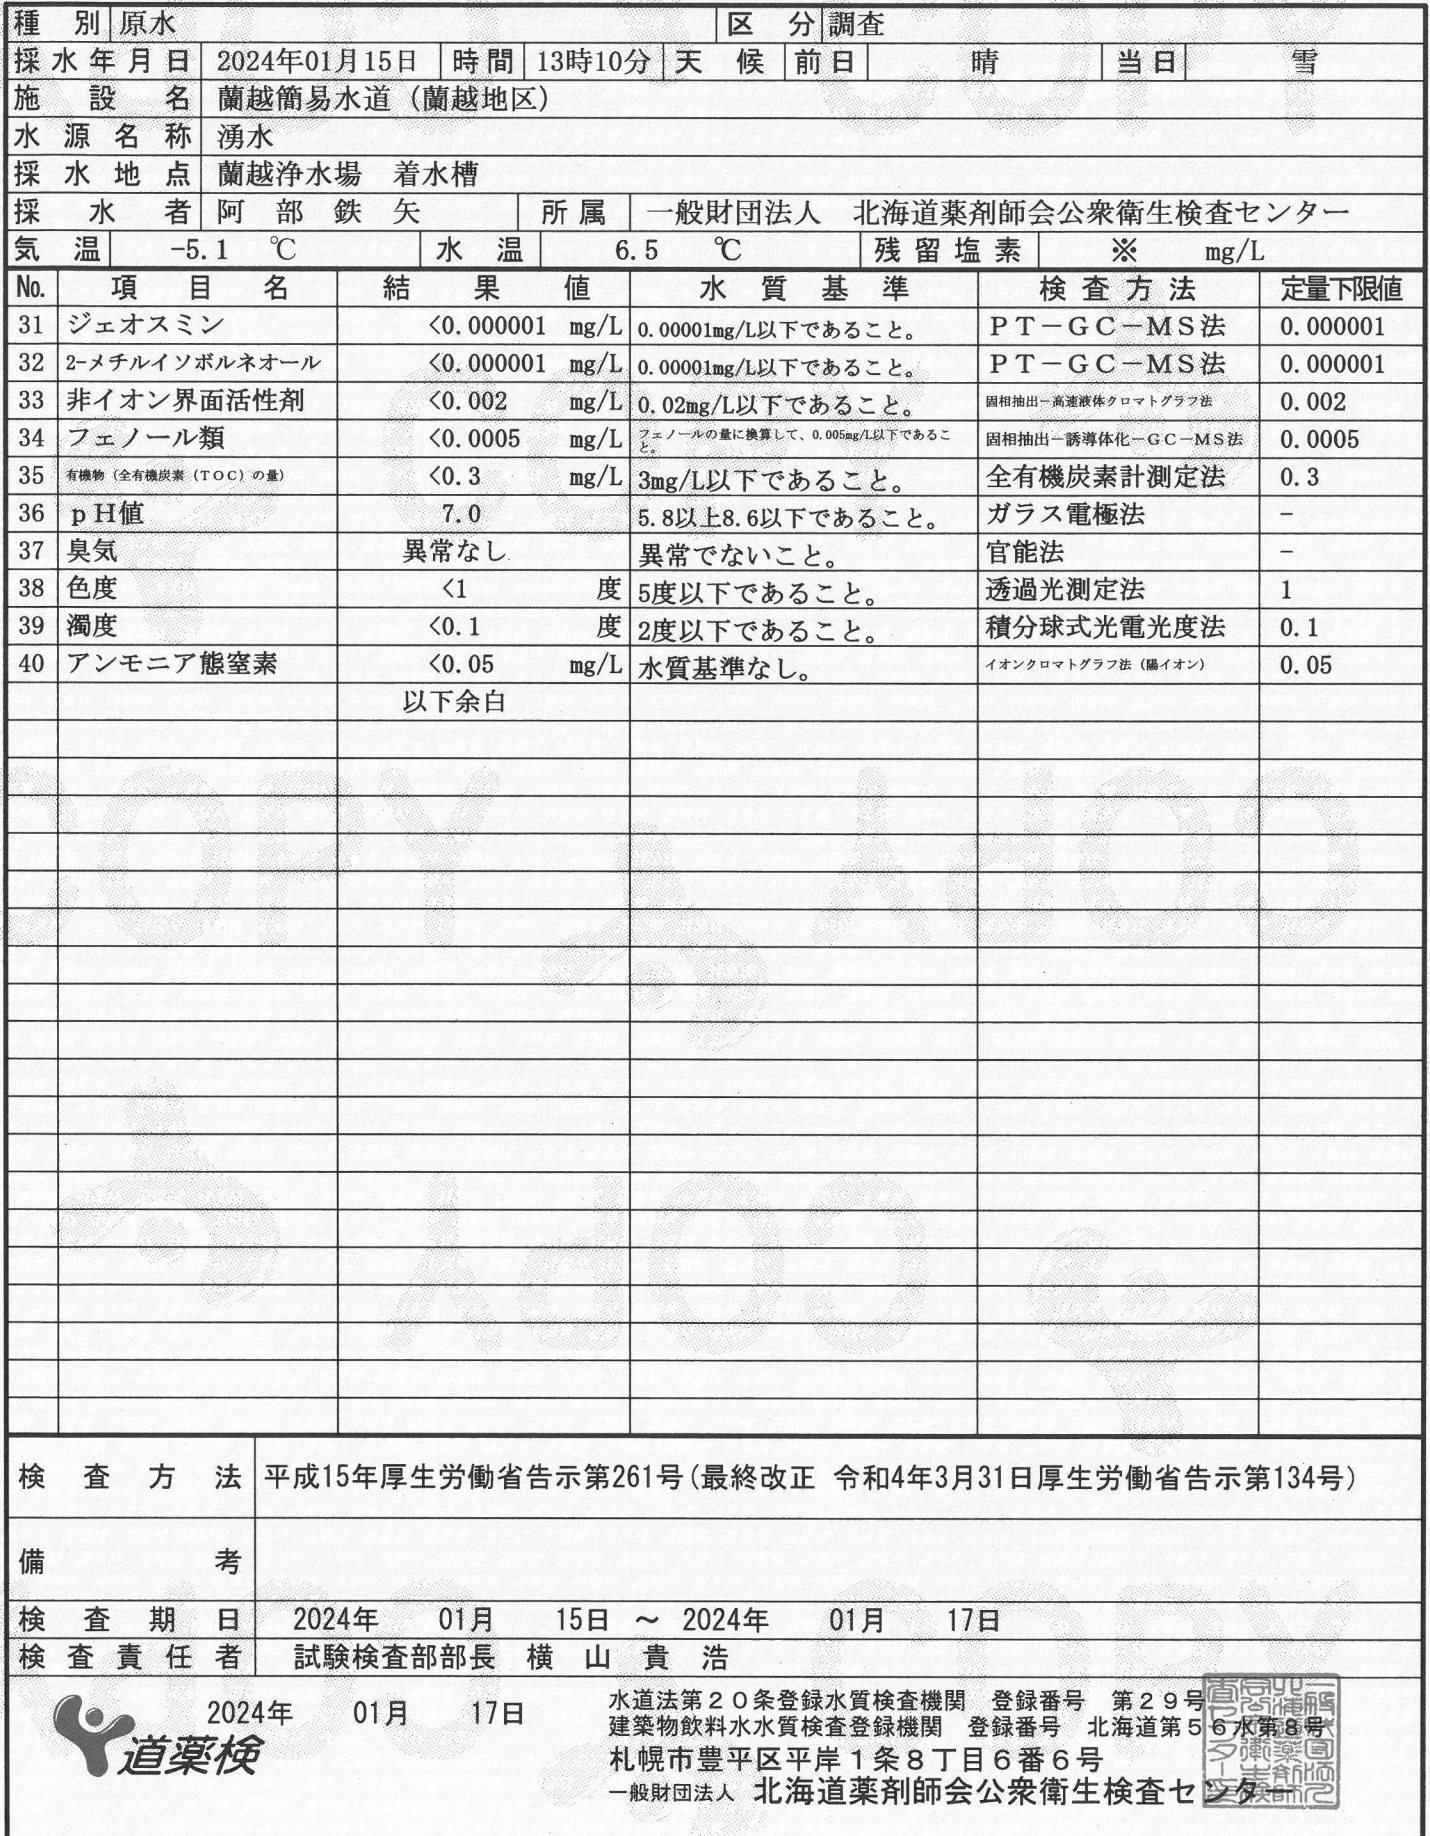 種 別 原水 区 分 調査
採水年月日 2024年01月15日 時間 13時10分 天候 前日 晴 当日 雪
施設名 蘭越簡易水道（蘭越地区）
水源名称 湧水
採水地点 蘭越浄水場 着水槽
採水者 阿部鉄矢 所属 一般財団法人 北海道薬剤師会公衆衛生検査センター
気温 -5.1 ℃ 水温 6.5 ℃ 残留塩素 ※ mg/L
No. 項目名 結果値 水質基準 検査方法 定量下限値
31 ジェオスミン <0.000001 mg/L 0.00001mg/L以下であること。 ＰＴ－ＧＣ－ＭＳ法 0.000001
32 2-メチルイソボルネオール <0.000001 mg/L 0.00001mg/L以下であること。 ＰＴ－ＧＣ－ＭＳ法 0.000001
33 非イオン界面活性剤 <0.002 mg/L 0.02mg/L以下であること。 固相抽出－高速液体クロマトグラフ法 0.002
34 フェノール類 <0.0005 mg/L フェノールの量に換算して、0.005mg/L以下であること。 固相抽出－誘導体化－ＧＣ－ＭＳ法 0.0005
35 有機物（全有機炭素（ＴＯＣ）の量） <0.3 mg/L 3mg/L以下であること。 全有機炭素計測定法 0.3
36 ｐＨ値 7.0 5.8以上8.6以下であること。 ガラス電極法 －
37 臭気 異常なし 異常でないこと。 官能法 －
38 色度 <1 度 5度以下であること。 透過光測定法 1
39 濁度 <0.1 度 2度以下であること。 積分球式光電光度法 0.1
40 アンモニア態窒素 <0.05 mg/L 水質基準なし。 イオンクロマトグラフ法（陽イオン） 0.05
以下余白
検査方法 平成15年厚生労働省告示第261号(最終改正 令和4年3月31日厚生労働省告示第134号)
備考
検査期日 2024年 01月 15日 ～ 2024年 01月 17日
検査責任者 試験検査部部長 横山貴浩
2024年 01月 17日
道薬検
水道法第２０条登録水質検査機関 登録番号 第２９号
建築物飲料水水質検査登録機関 登録番号 北海道第５６水第８号
札幌市豊平区平岸１条８丁目６番６号
一般財団法人 北海道薬剤師会公衆衛生検査センター
COPY
COPY
COPY